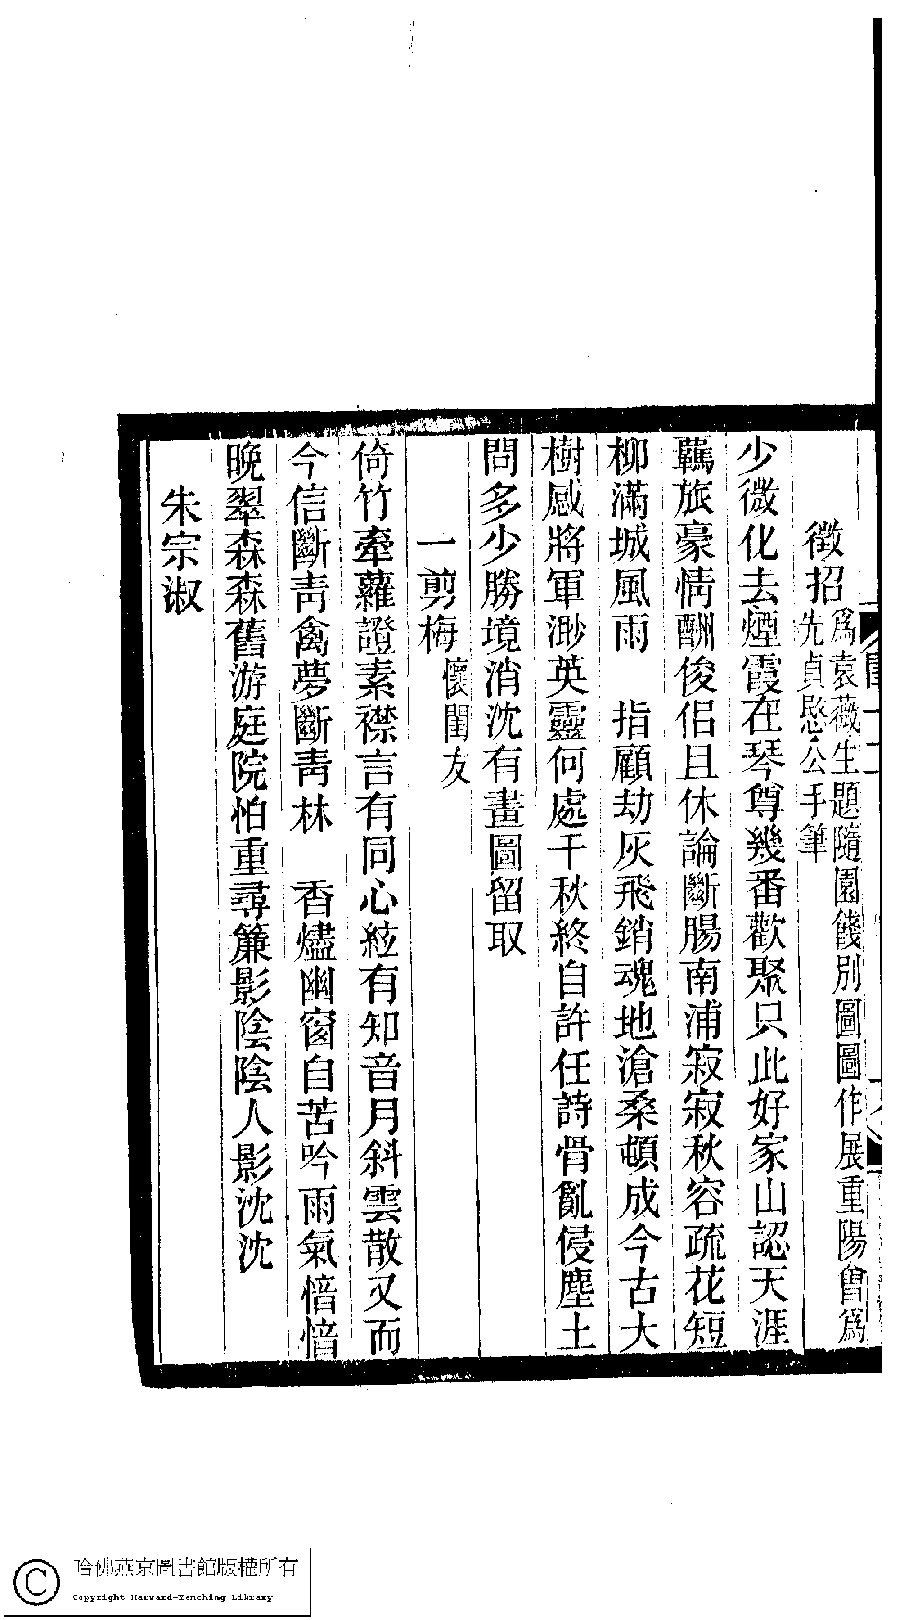 徵招爲袁薇生題隨園餞別圖圖作展重陽曾爲
先貞愍公手筆
少微化去煙霞在琴尊幾番歡聚只此好家山認天涯
羈旅豪情酬俊侶且休論斷腸南浦寂寂秋容疏花短
柳滿城風雨　指顧劫灰飛銷魂地滄桑頓成今古大
樹感將軍渺英靈何處千秋終自許任詩骨亂侵塵土
問多少勝境消沈有畫圖留取
一剪梅懷閨友
倚竹牽蘿證素襟言有同心絃有知音月斜雲散又而
今信斷靑禽夢斷靑林　香燼幽窗自苦吟雨氣愔愔
晚翠森森舊游庭院怕重尋簾影陰陰人影沈沈
朱宗淑
哈佛燕京圖書館版權所有
Copyright Harvard-Yenching Library